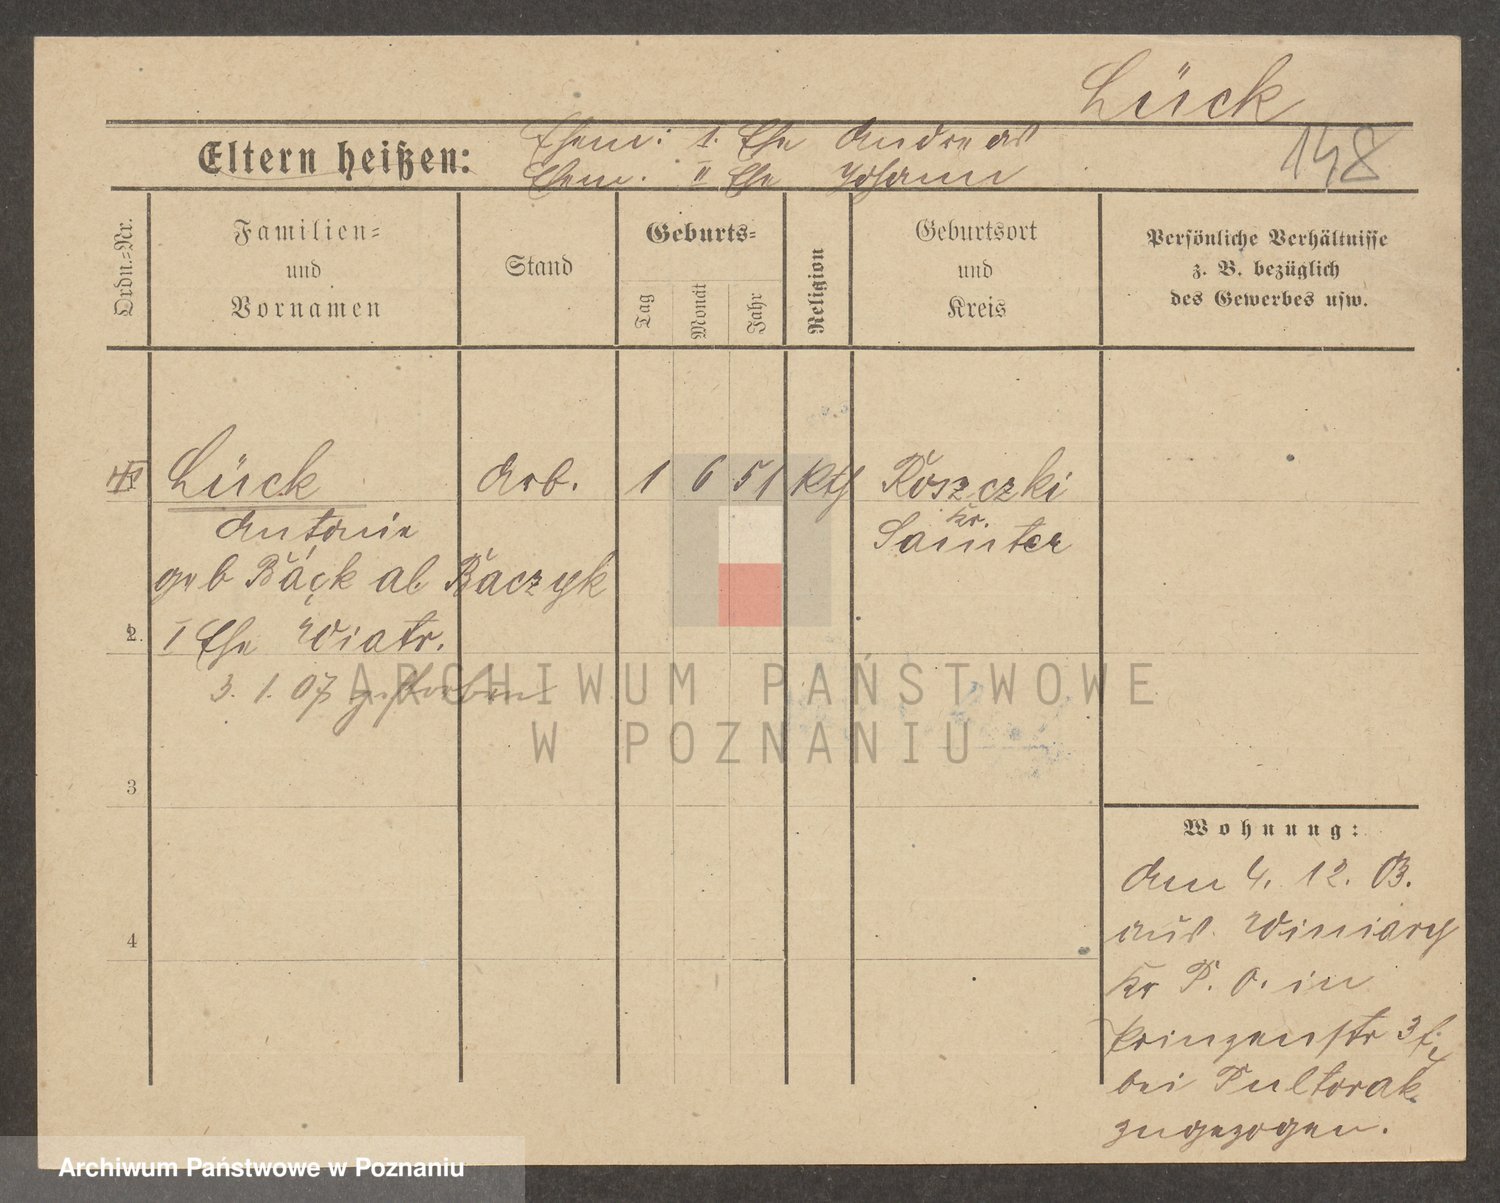 Lück
148
Eltern heißen: Ehem: 1. Ehe Andreas
Ehem. II Ehe Johann
Ordn.-Nr.
Familien-
und
Vornamen
Stand
Geburts-
Tag
Monat
Jahr
Religion
Geburtsort
und
Kreis
Persönliche Verhältnisse
z. B. bezüglich
des Gewerbes usw.
Lück Arb. 1 6 51 kth Roszczki
Kr.
Antonie Samter
geb Bąck al. Baczyk
2. I Ehe Wiatr.
3. 1. 07 gestorben
3
4
Wohnung:
Am 4. 12. 03.
aus Winiary
Kr P. O. in
Prinzenstr
bei Pultorak
zugezogen.
ARCHIWUM PAŃSTWOWE
W POZNANIU
Archiwum Państwowe w Poznaniu